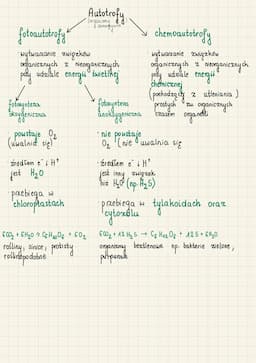 Autotrofy
fotoautotrofy
chemoautotrofy
wytwarzanie związków
organicznych z nieorganicznych
przy udziale energii świetlnej
wytwarzanie związków
organicznych z nieorganicznych
przy udziale energii
chemicznej
(pochodzącej z utleniania)
prostych zw. organicznych
czasem
fotosynteza
oksygeniczna
fotosynteza
anoksygeniczna
powstaje O₂
(uwalnia się)
nie powstaje
O₂ (nie uwalnia się)
źródłem e⁻ i H⁺
jest H₂O
źródłem e⁻ i H⁺
jest inny związek
niż H₂O (np. H₂S)
przebiega w
chloroplastach
przebiega w tylakoidach oraz
cytozolu
6CO₂ + 6H₂O → C₆H₁₂O₆ + 6O₂
6CO₂ + 12H₂S → C₆H₁₂O₆ + 12S + 6H₂O
rośliny, sinice, protisty
roślinopodobne
organizmy beztlenowe np. bakterie zielone,
purpurowe